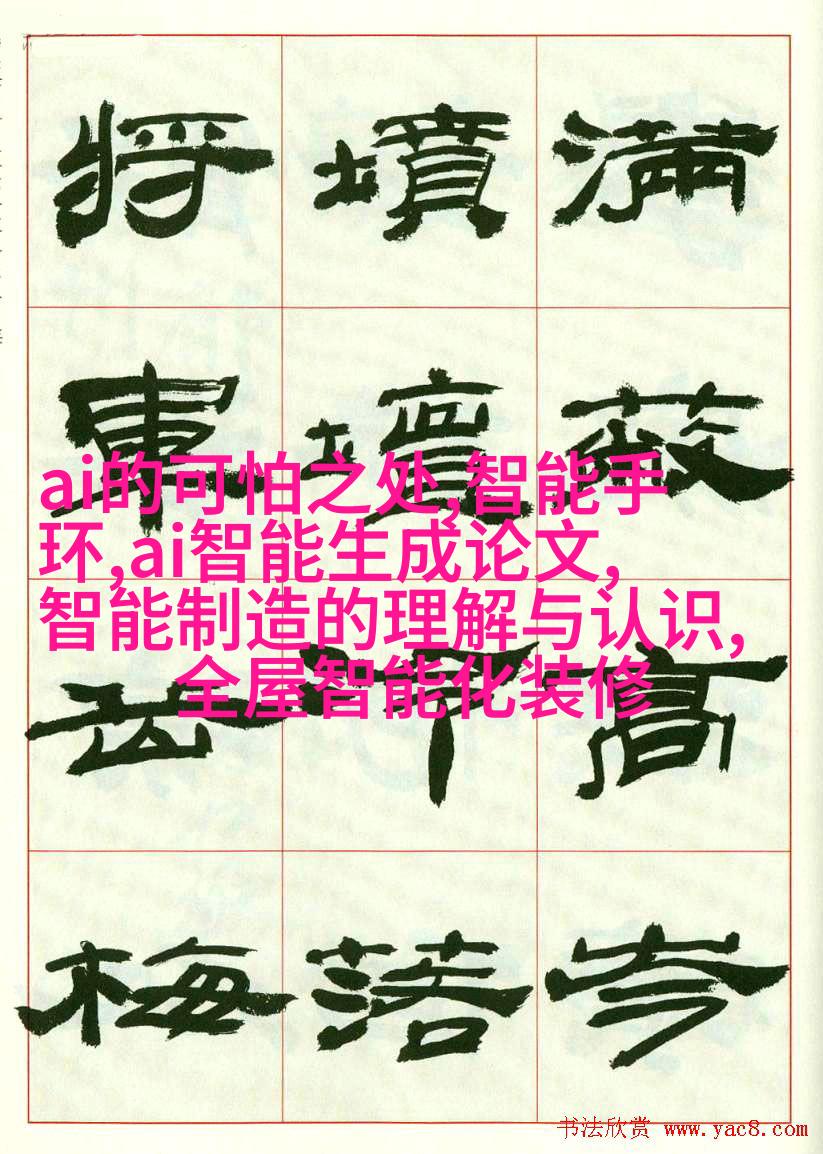 滿高岑
墳落
將軍岳梅
ai的可怕之处,智能手
环,ai智能生成论文,
智能制造的理解与认识,
全屋智能化装修
书法欣赏 www.yac8.com